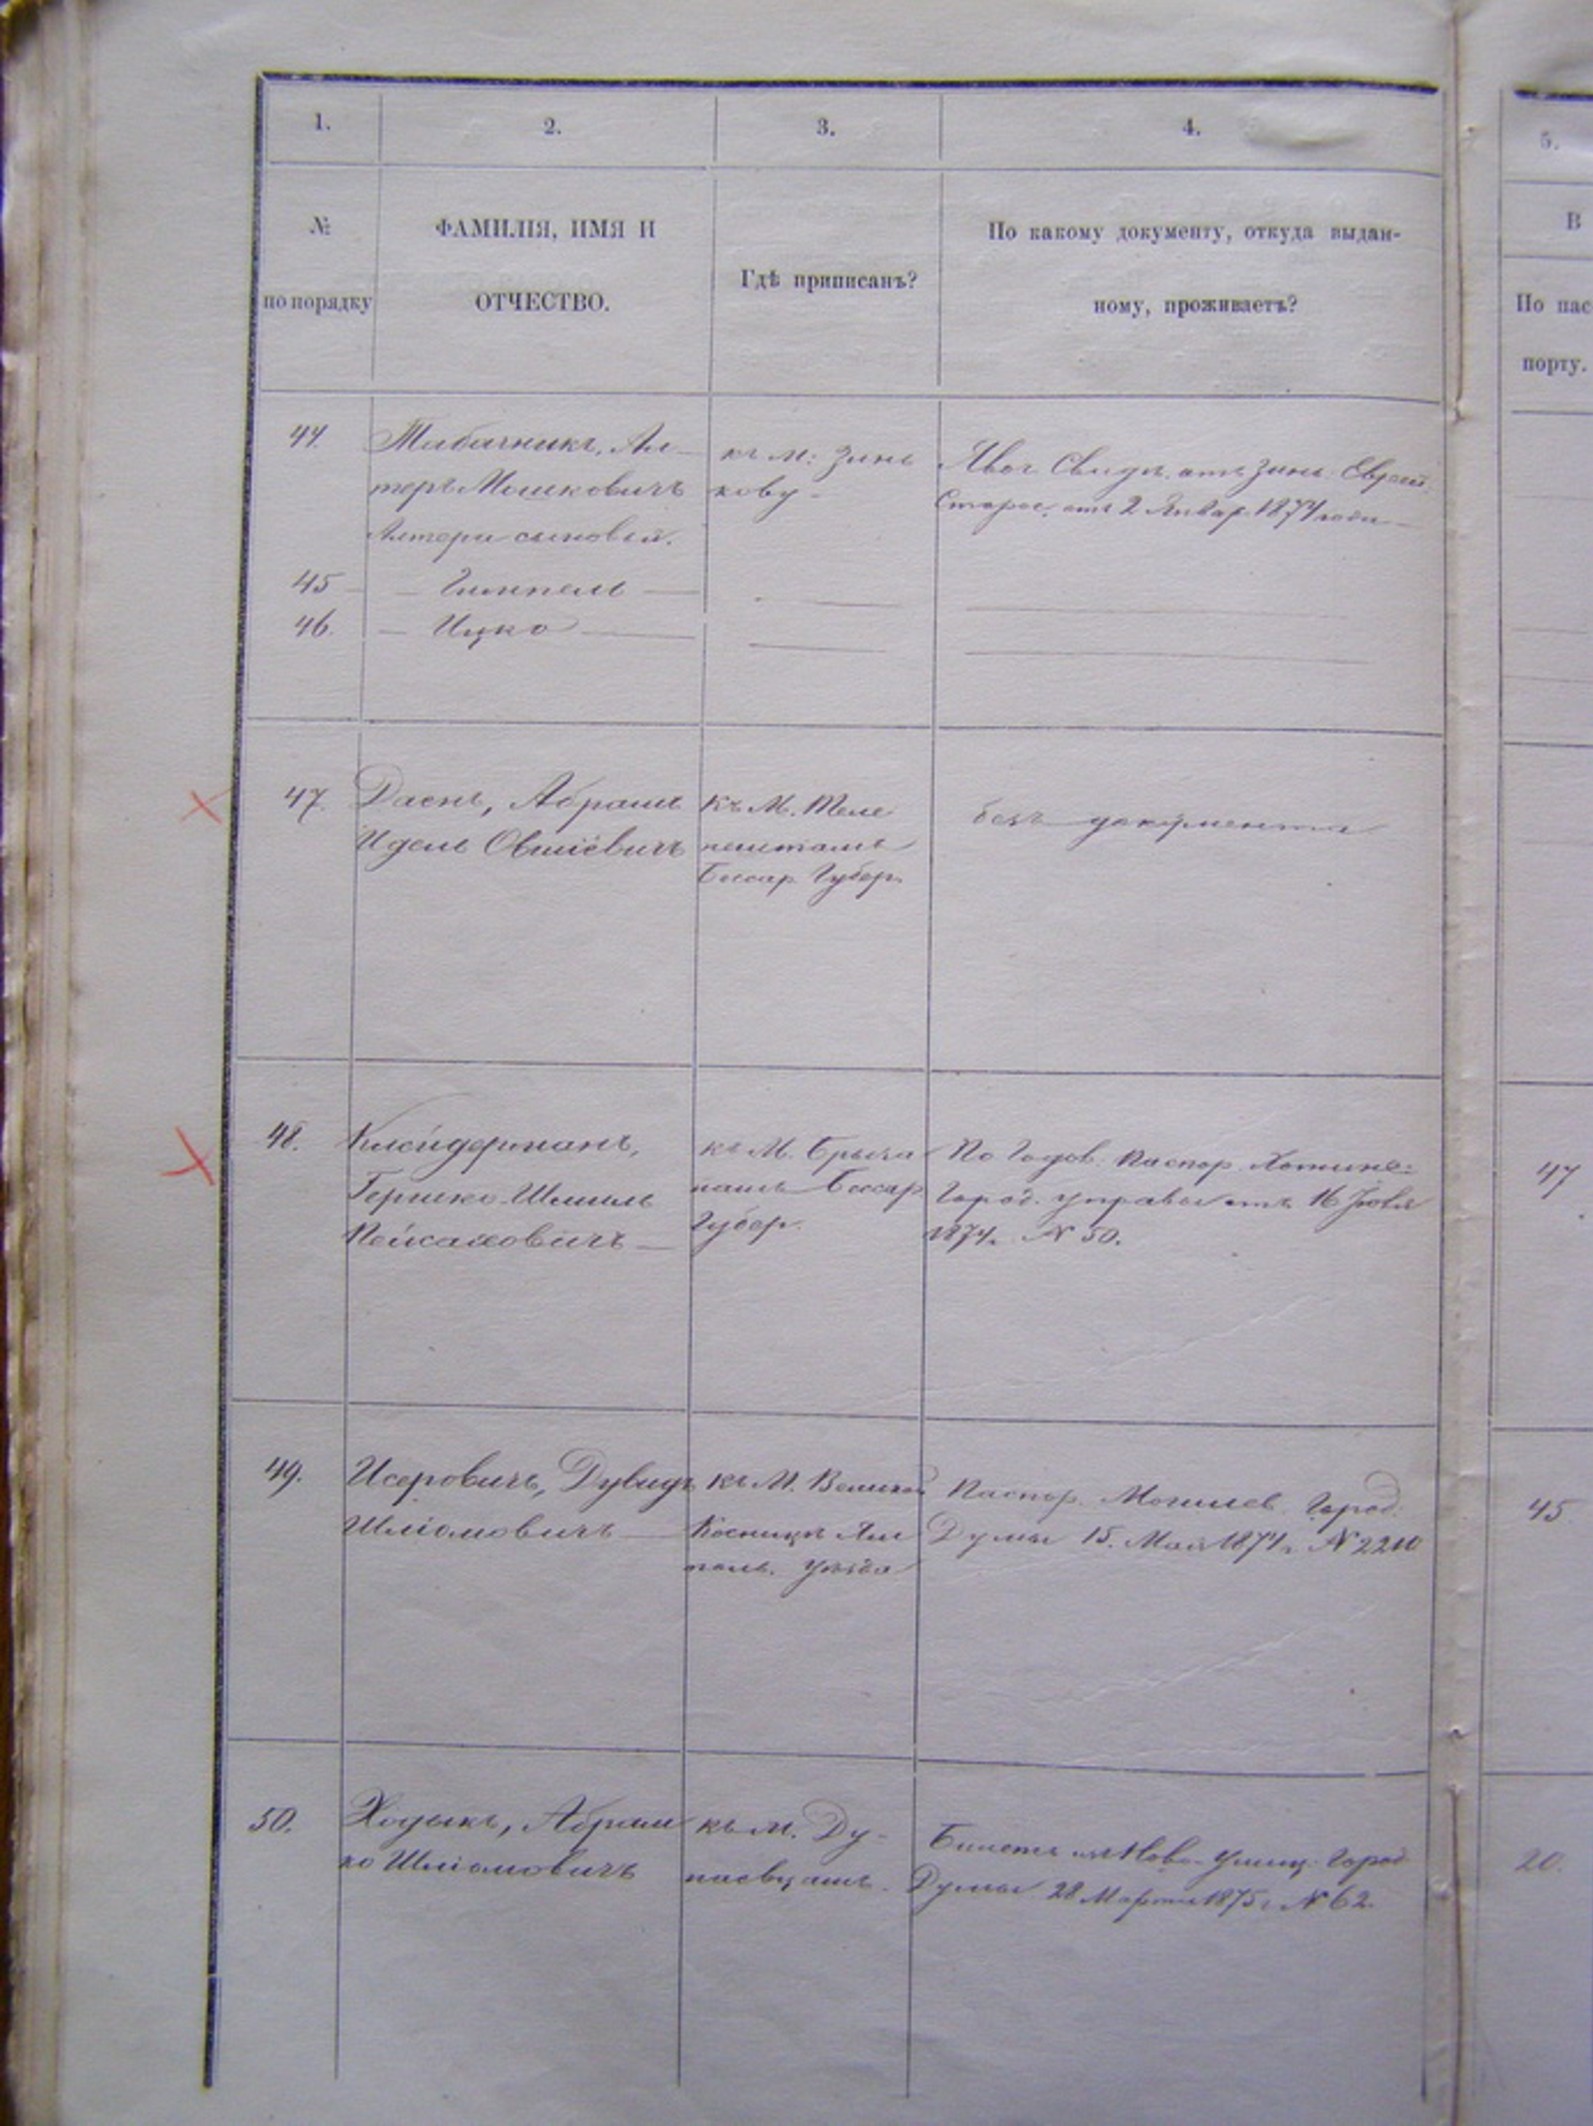 1.
2.
3.
4.
5.
№
по порядку
ФАМИЛІЯ, ИМЯ И
ОТЧЕСТВО.
Гдѣ приписанъ?
По какому документу, откуда выдан-
ному, проживаетъ?
В
По пас
порту.
44.
Табачникъ, Ал-
теръ Мошковичъ
Алтера сыновья.
къ м: Зинь
кову -
Явоч. Свидѣ. отъ Зинь. Еврей.
Старос. отъ 2 Январ. 1874 года
45 — Гимпель —
46. — Ицко —
47.
Даенъ, Абрамъ
Идель Овшіевичъ
къ М. Теле
нештамъ
Бессар. Губер.
безъ документа
48.
Клейдерманъ,
Гершко-Шмиль
Пейсаховичъ —
къ М. Брыча
намъ Бессар
Губер.
По Годов. Паспор. Хотинс:
Город. управы отъ 16 Іюля
1874г. № 50.
47
49.
Исеровичъ, Дувидъ
Шліомовичъ —
къ М. Великой
Косницѣ Ям
поль. уѣзда
Паспор. Могилев. Город.
Думы 15. Мая 1874 г. № 2210
45
50.
Ходыкъ, Абрам
ко Шліомовичъ
къ м. Ду-
наевцамъ.
Билетъ изъ Ново-Ушиц. Город
Думы 28 Марта 1875 г. № 62.
20.